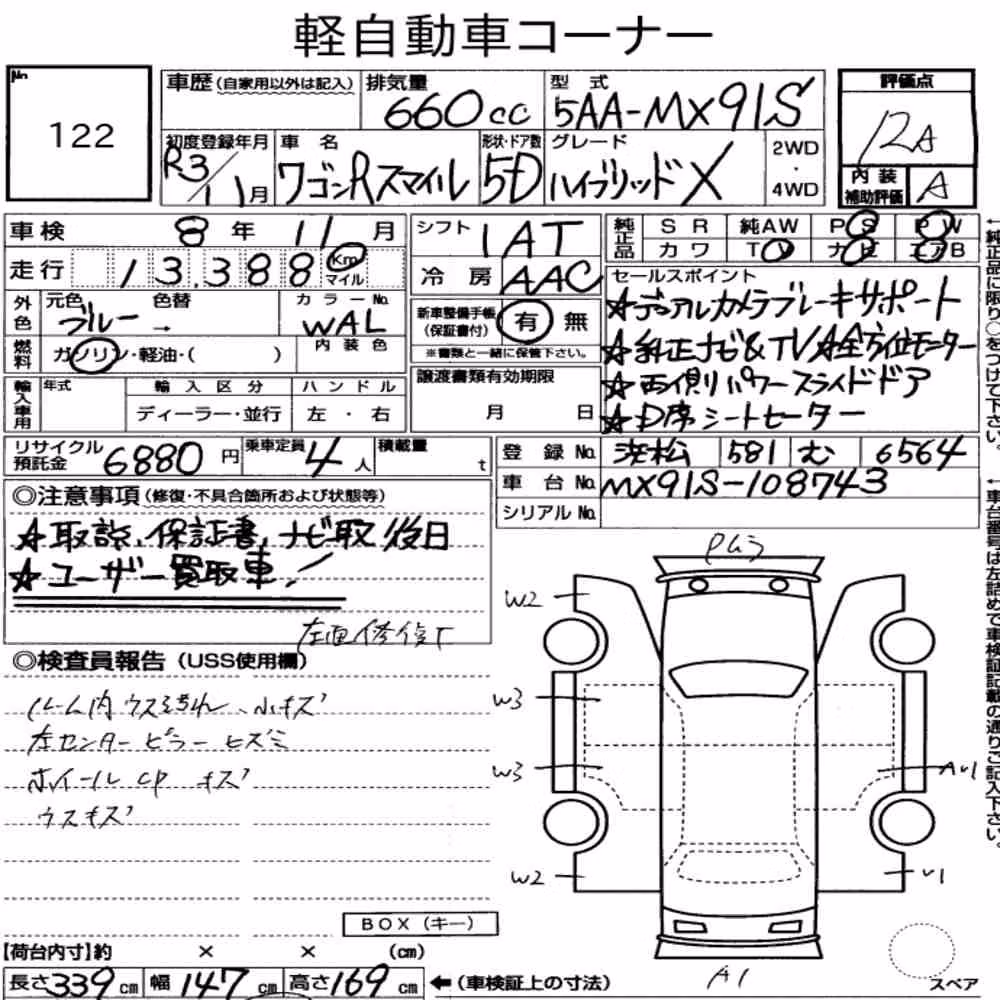 軽自動車コーナー
No.
122
車歴 (自家用以外は記入)
排気量
660cc
型式
5AA-MX91S
評価点
RA
初度登録年月
R3/11月
車名
ワゴンRスマイル
形状・ドア数
5D
グレード
ハイブリッドX
2WD
・
4WD
内装
補助評価
A
車検 8年 11月
シフト
IAT
純正品
SR 純AW PS PW
カワ TV ナビ エアB
走行 13,388 Km
マイル
冷房
AAC
外色
元色
ブルー
→
色替
カラーNo.
WAL
新車整備手帳
(保証書付)
有 無
※書類と一緒に保管下さい。
セールスポイント
☆デュアルカメラブレーキサポート
☆純正ナビ&TV☆全方位モニター
☆両側パワースライドドア
☆D席シートヒーター
燃料
ガソリン・軽油・( )
内装色
輸入車用
年式
輸入区分
ディーラー・並行
ハンドル
左・右
譲渡書類有効期限
月 日
リサイクル
預託金
6880円
乗車定員
4人
積載量
t
登録No.
浜松 581 む 6564
車台No.
MX91S-108743
シリアルNo.
◎注意事項 (修復・不具合箇所および状態等)
☆取説、保証書、ナビ取後日
☆ユーザー買取車!
左面修復下
◎検査員報告 (USS使用欄)
ルーム内ウス汚れ、小キズ
左センターピラーヒズミ
ホイールCPキズ
ウスキズ
W2
W3
W3
AU1
W2
U1
A1
BOX (キー)
スペア
【荷台内寸】約 × × (cm)
長さ339cm 幅147cm 高さ169cm
←(車検証上の寸法)
←純正品に限り○をつけて下さい。
←車台番号は左詰めで車検証記載の通りご記入下さい。